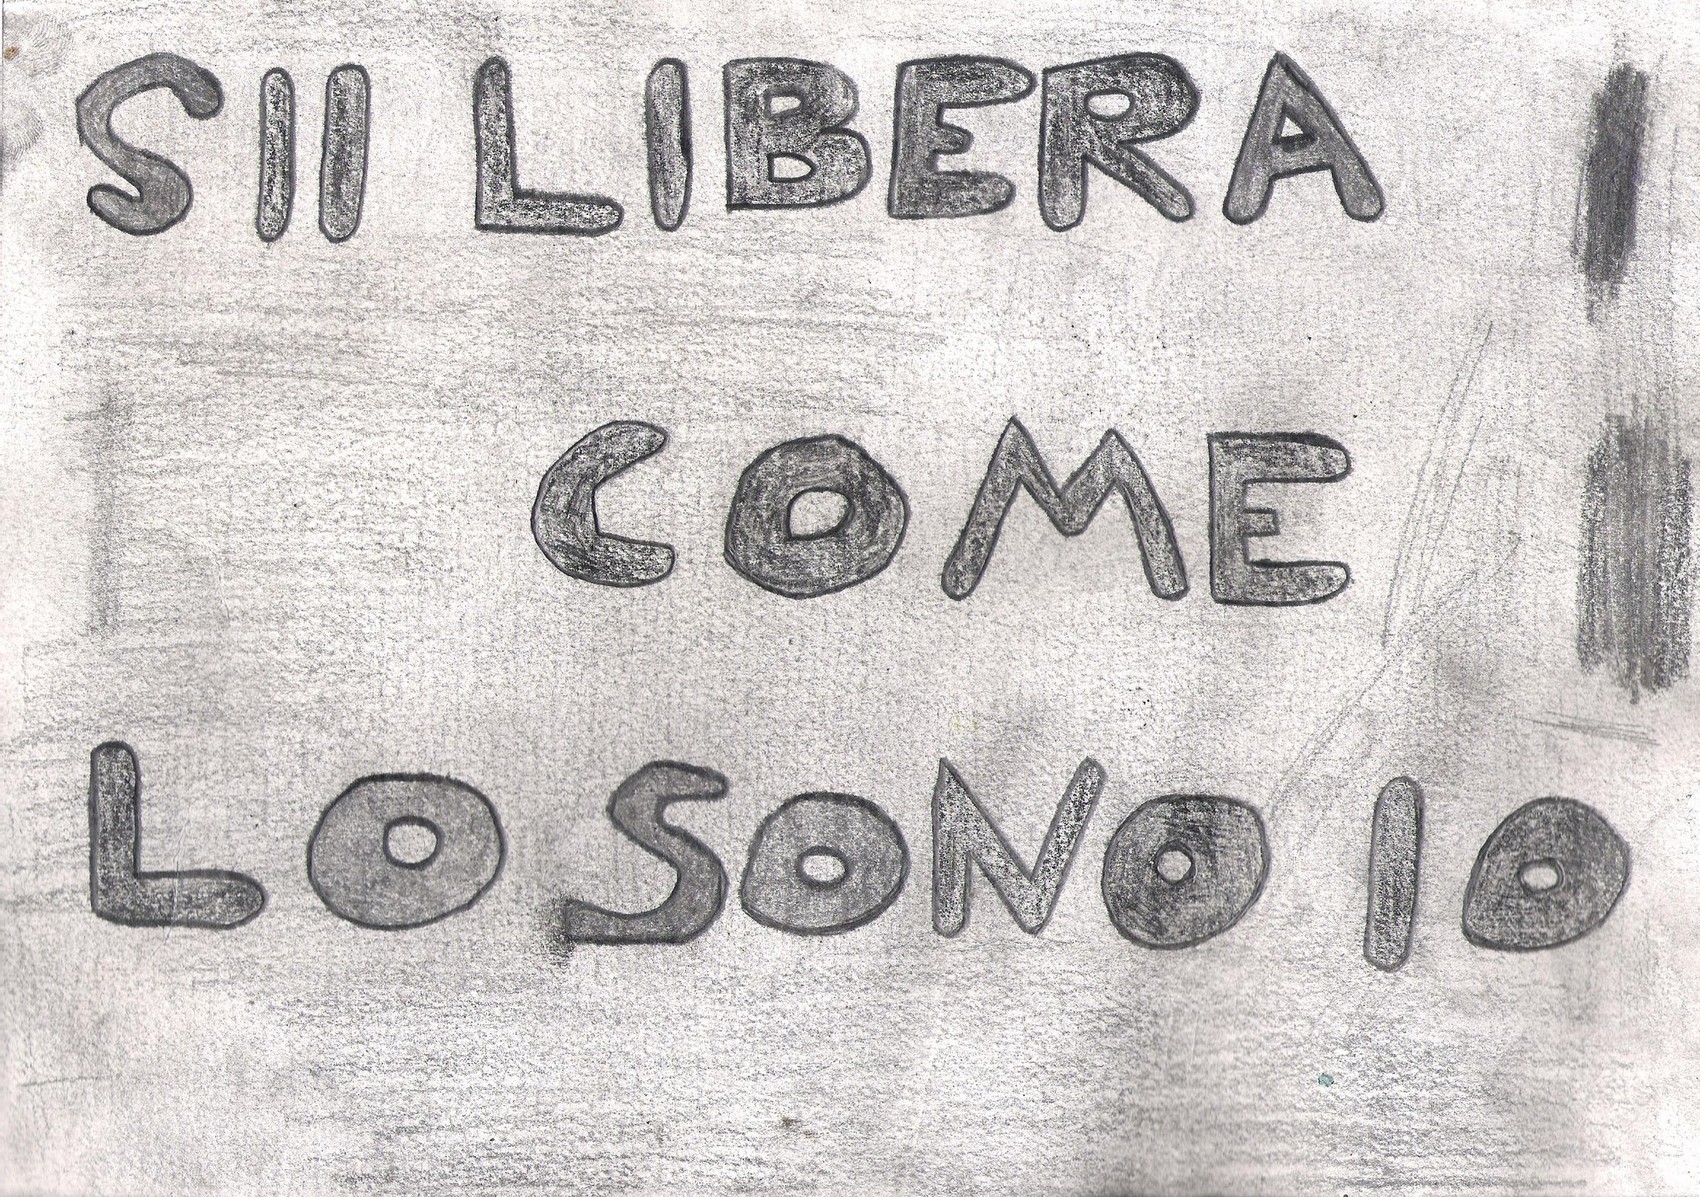 SII LIBERA
COME
LO SONO IO